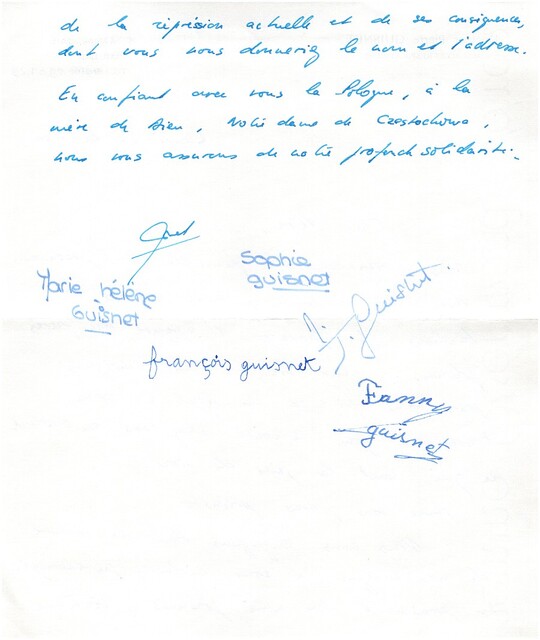 de la répression actuelle et de ses conséquences,
dont vous nous donneriez le nom et l'adresse.
En confiant avec vous la Pologne, à la
mère de Dieu, Notre dame de Czestochowa,
nous vous assurons de notre profonde solidarité.
Sophie
guisnet
Marie hélène
Guisnet
J. Guisnet.
françois guisnet
Fanny
guisnet